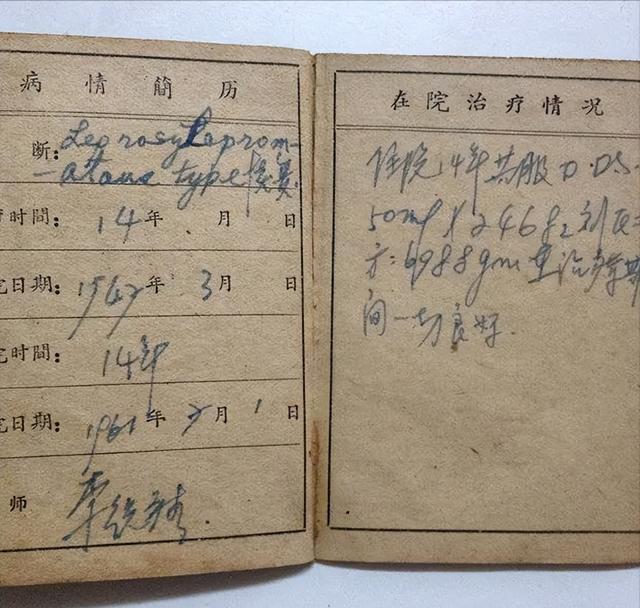 病情简历
断: Leprosy Leprom-
-atous type
时間: 14年 月 日
日期: 1947年 3月 日
时間: 14年
日期: 1961年 2月 1日
师
在院治疗情况
住院14年共服D.D.S.
50mg X 2468
方: 6988gm 治疗
间一切良好.